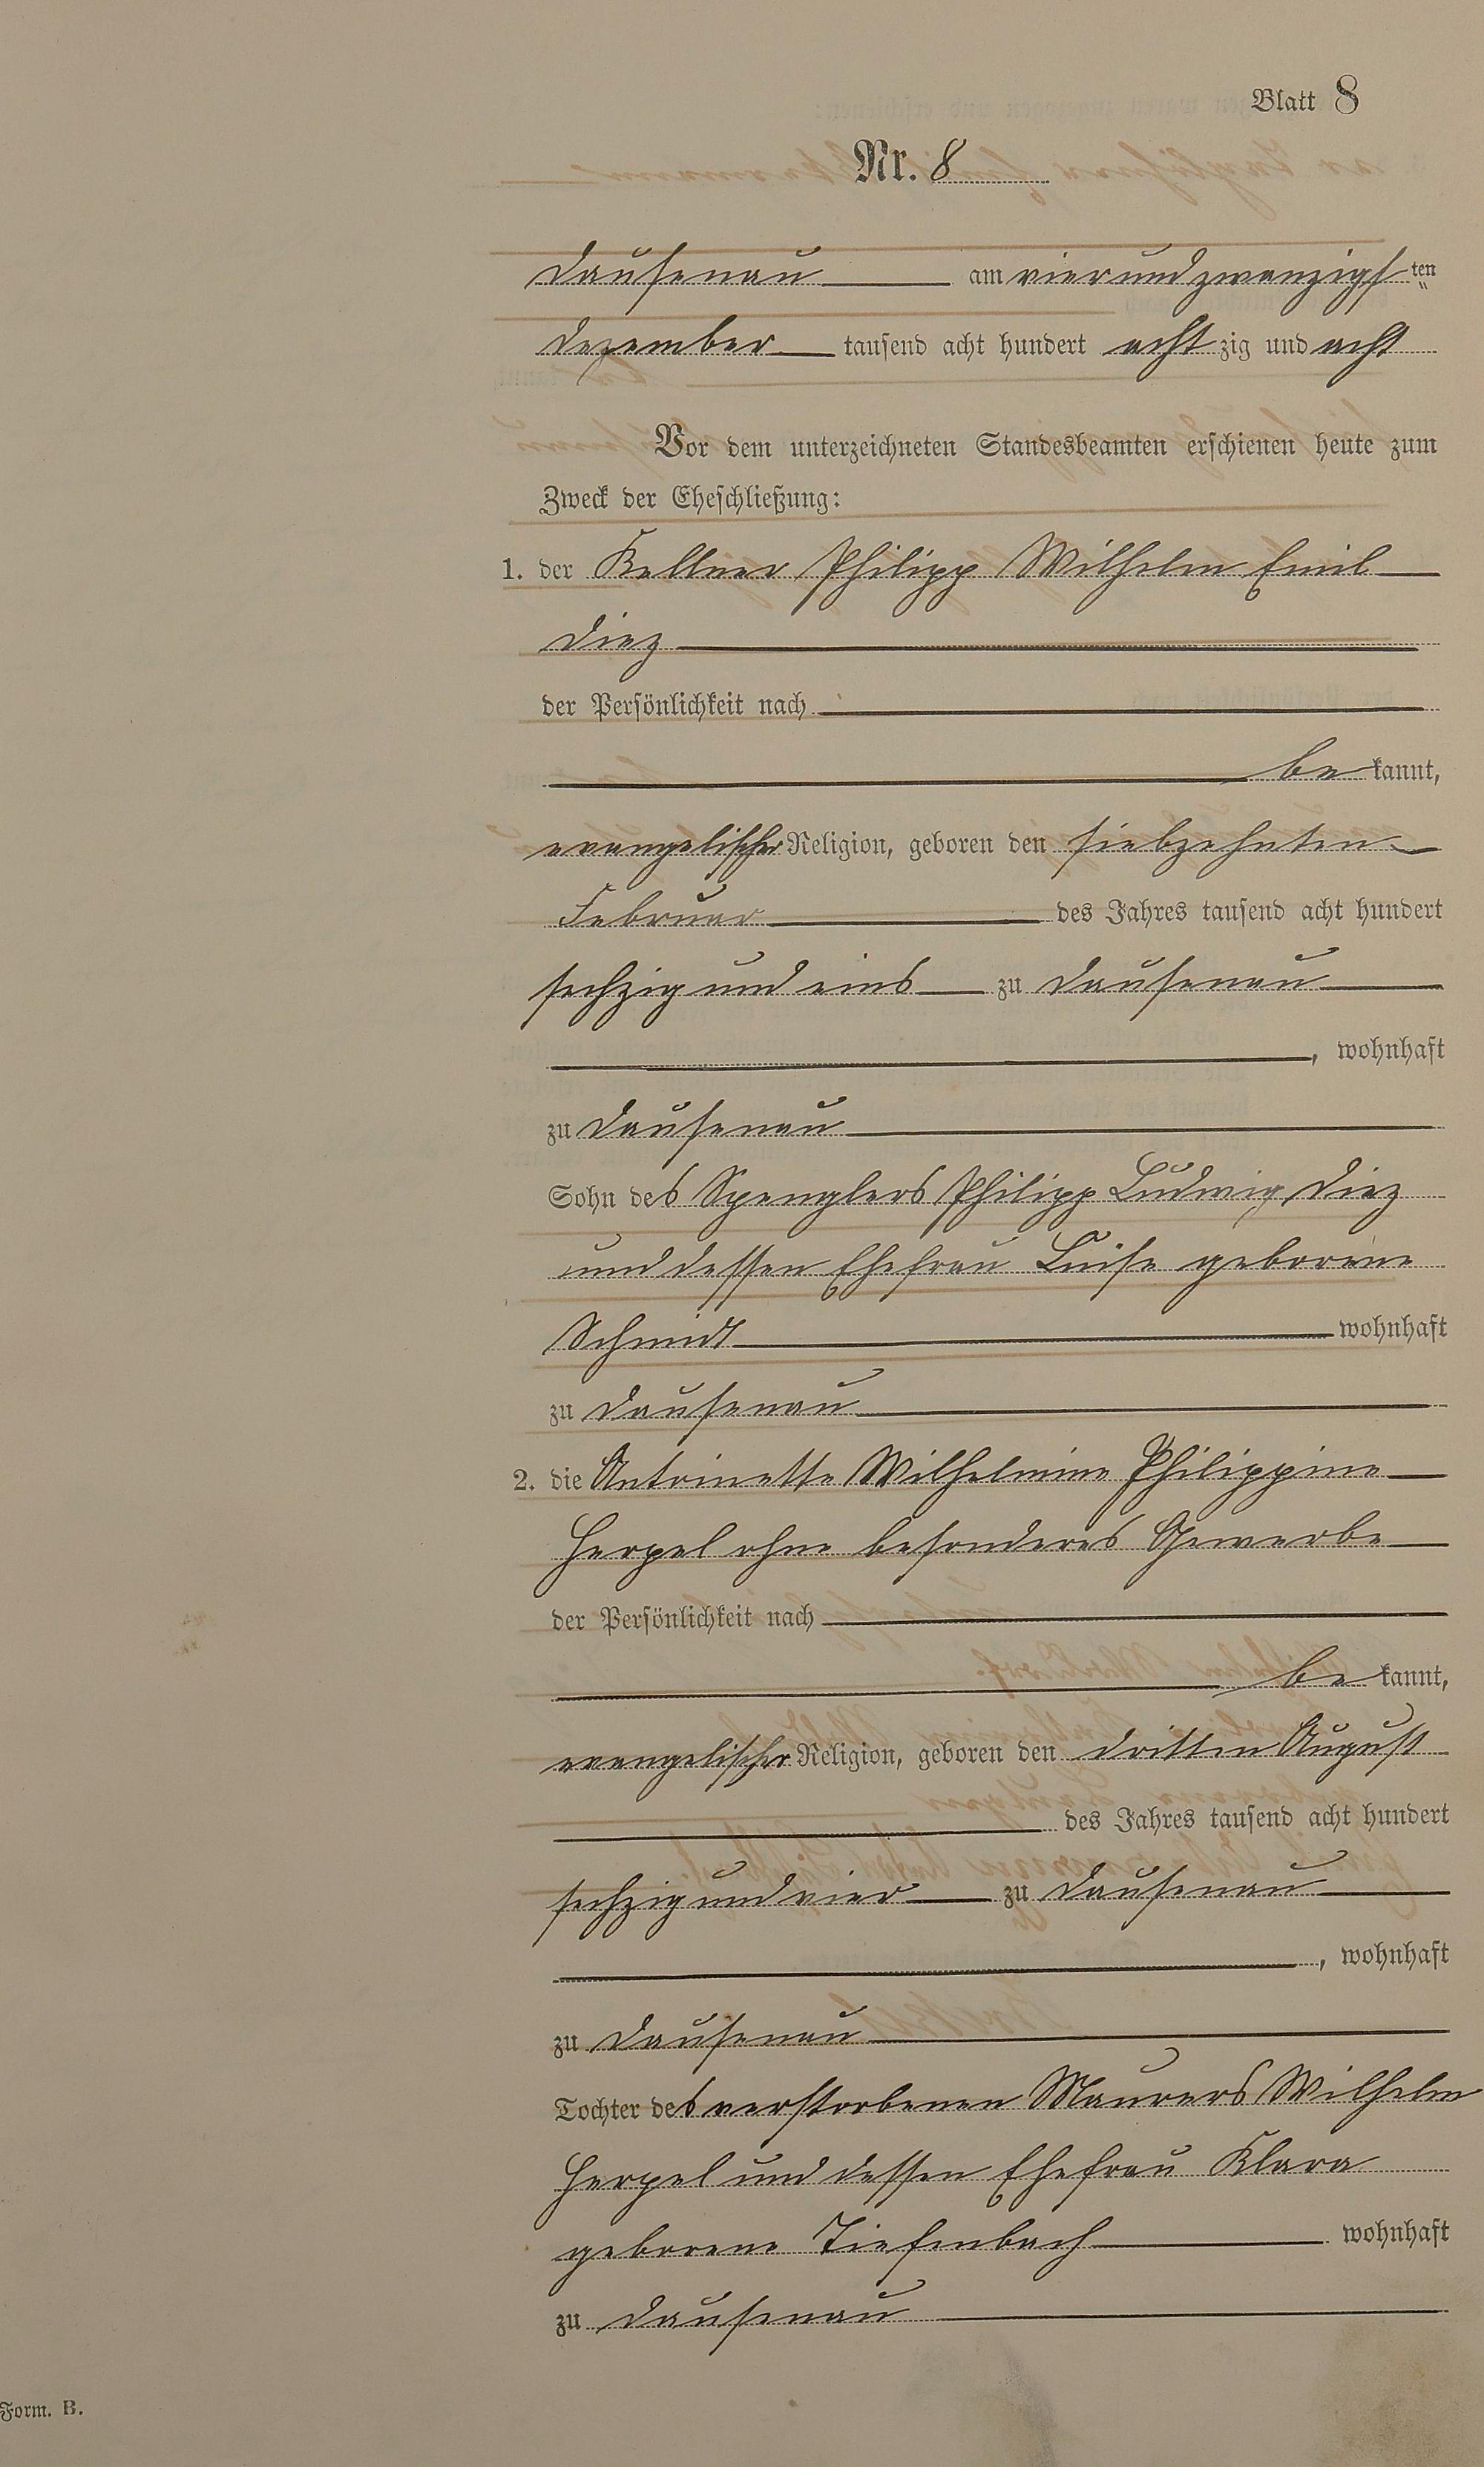 Blatt 8
Nr. 8
Dausenau am vierundzwanzigsten
Dezember tausend acht hundert achtzig und acht
Vor dem unterzeichneten Standesbeamten erschienen heute zum
Zweck der Eheschließung:
1. der Kellner Philipp Wilhelm Emil
Diez
der Persönlichkeit nach
bekannt,
evangelischer Religion, geboren den siebzehnten
Februar des Jahres tausend acht hundert
sechzig und eins zu Dausenau
, wohnhaft
zu Dausenau
Sohn des Spenglers Philipp Ludwig Diez
und dessen Ehefrau Luise geborene
Schmidt wohnhaft
zu Dausenau
2. die Antoinette Wilhelmine Philippine
Herpel ohne besonderes Gewerbe
der Persönlichkeit nach
bekannt,
evangelischer Religion, geboren den dritten August
des Jahres tausend acht hundert
sechzig und vier zu Dausenau
, wohnhaft
zu Dausenau
Tochter des verstorbenen Maurers Wilhelm
Herpel und dessen Ehefrau Klara
geborene Tiefenbach wohnhaft
zu Dausenau
Form. B.